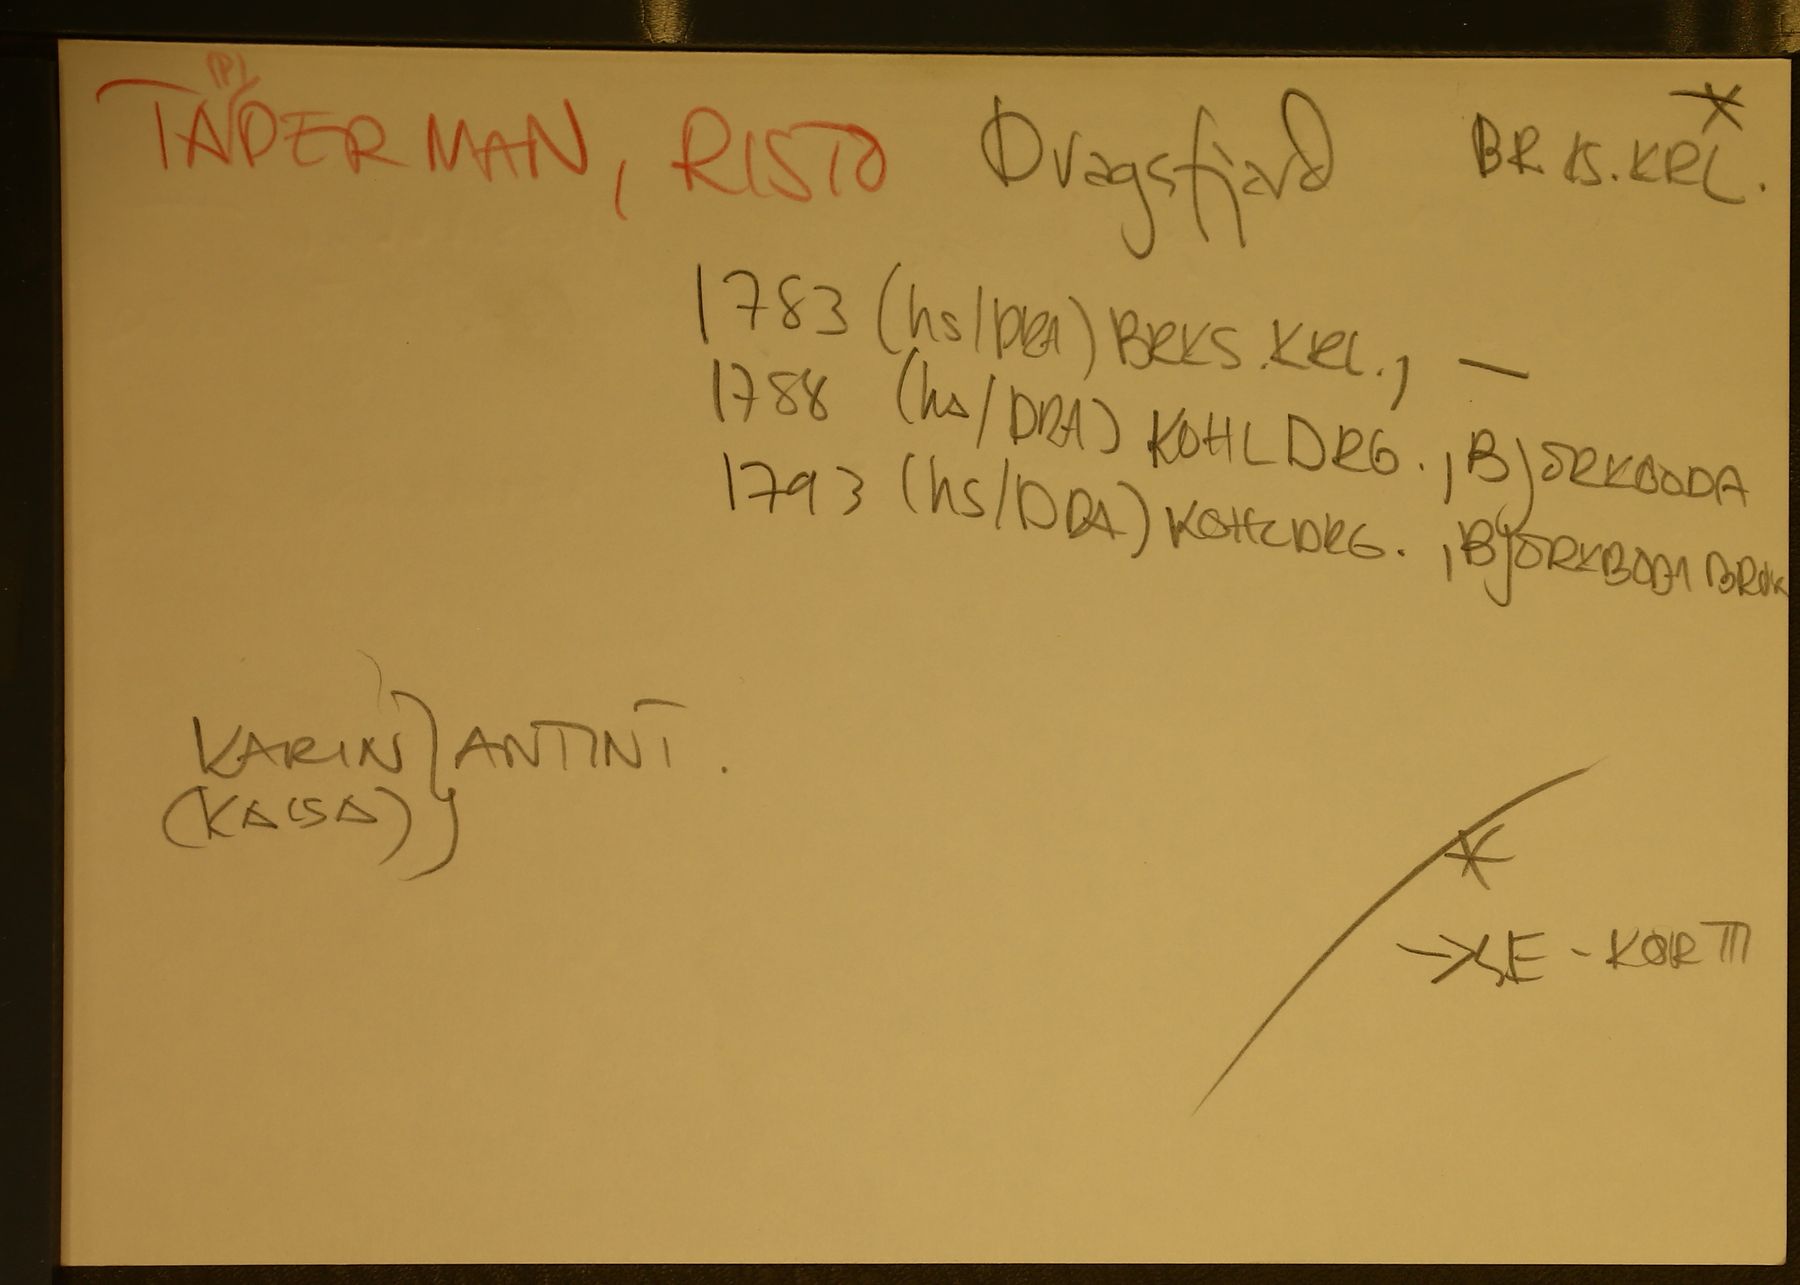 (P)
TÄDERMAN, RISTO Dragsfjärd BRKS.KRL.
1783 (hs/DRA) BRKS.KRL., —
1788 (hs/DRA) KOHLDRG., BJÖRKBODA
1793 (hs/DRA) KOHLDRG., BJÖRKBODA BRUK
KARIN } ANTINT.
(KAISA)
→ SE-KORTTI